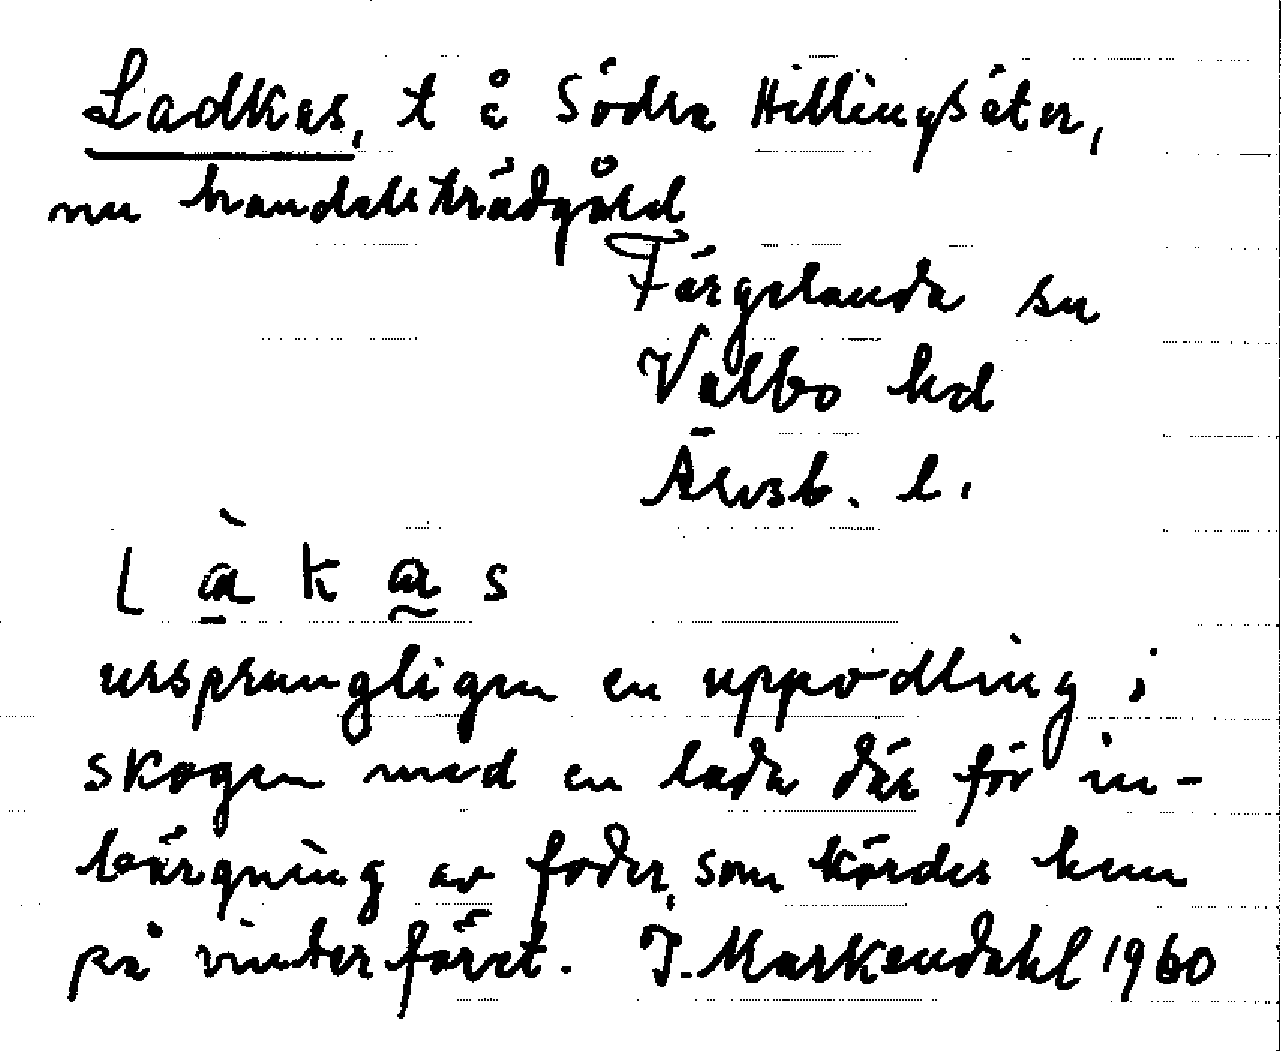 Ladkas, t å Södra Hillingsäter,
nu handelsträdgård
Färgelanda sn
Valbo hd
Älvsb. l.
l à k a s
ursprungligen en uppodling i
skogen med en lada där för in-
bärgning av foder, som kördes hem
på vinterföret. I. Markendahl 1960